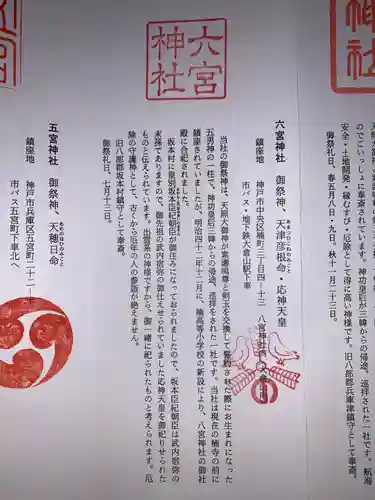 神社
のでごいっしょに奉斎されています。神功皇后が三韓からの帰途、巡拝をされた一社です。航海
安全・土地開発・縁むすび・厄除として得に高い神様です。旧八部郡兵庫津鎮守として奉斎。
御祭礼日、春五月八日・九日。秋十一月二十三日。
六宮
神社
六宮神社
御祭神、天津彦根命・応神天皇
あまつひこねのみこと
鎮座地
神戸市中央区楠町三丁目四-十三 八宮神社
市バス・地下鉄大倉山駅下車
当社の御祭神は、天照大御神が素盞嗚尊と剣玉を交換して誓約された際にお生まれになった
五男神の一柱で、神功皇后三韓からの帰途、巡拝をされた一社です。当社は現在の楠寺の前に
鎮座されていましたが、明治四十二年十二月に、楠高等小学校の新設により、八宮神社の御社
殿に合祀されました。
坂本村に皇別坂本臣紀朝臣が御住みになっておられましたので、坂本臣紀朝臣は武内宿弥の
末孫でありますので、御先祖の武内宿弥の御仕えせられていました応神天皇を御祀りせられた
ものと伝えられています。出雲系の神様ですから、御一緒に祀られたものと考えられます。厄
除の守護神として、古くから厄年の人の参詣が絶えません。
旧八部郡坂本村鎮守として奉斎。
御祭礼日、七月十三日。
五宮神社
御祭神、天穂日命
あめのほひのみこと
鎮座地
神戸市兵庫区五宮町二十二-一
市バス五宮町下車北へ